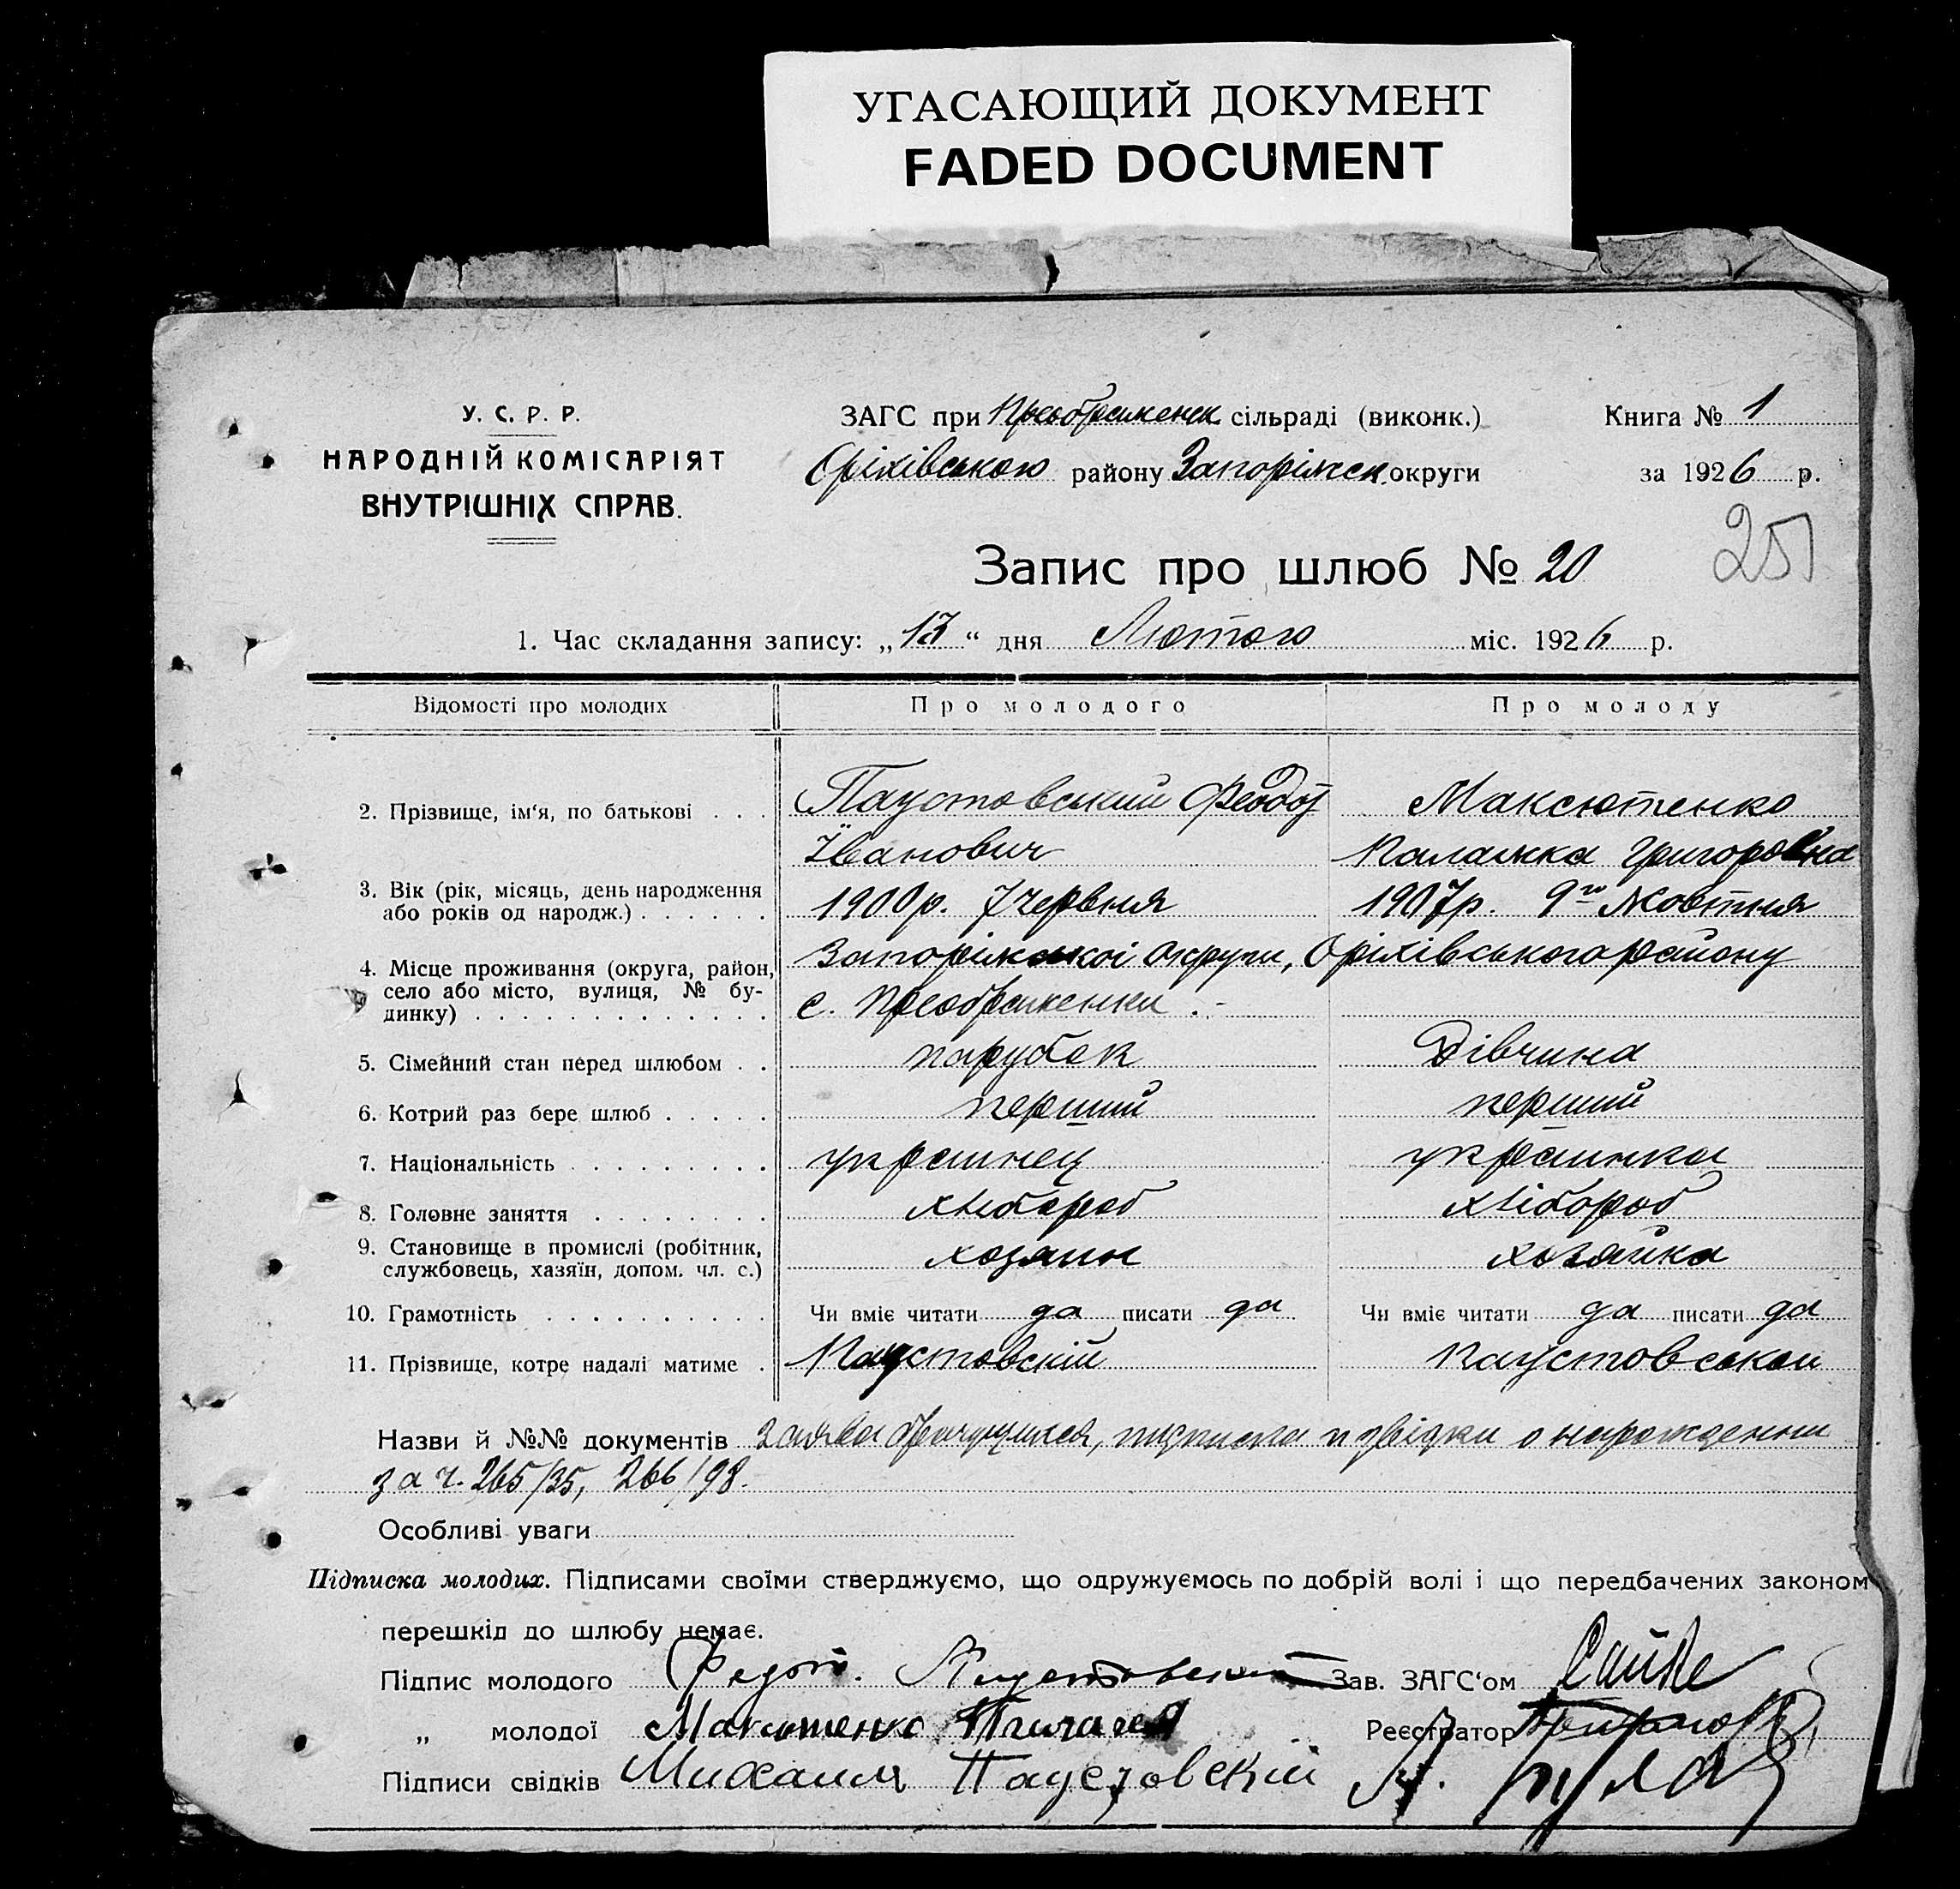 УГАСАЮЩИЙ ДОКУМЕНТ
FADED DOCUMENT
У. С. Р. Р.
НАРОДНІЙ КОМІСАРІЯТ
ВНУТРІШНІХ СПРАВ.
ЗАГС при Преображенск сільраді (виконк.)
Оріхівського району Запоріжск. округи
Книга № 1
за 1926 р.
251
Запис про шлюб № 20
1. Час складання запису: „13“ дня Лютого міс. 1926 р.
Відомості про молодих Про молодого Про молоду
2. Прізвище, ім‘я, по батькові . . . Паустовський Феодот Максютенко
Іванович Палажка Григоровна
3. Вік (рік, місяць, день народження
або років од народж.) . . . . . . 1900р. 7 червня 1907р. 9го Жовтня
4. Місце проживання (округа, район,
село або місто, вулиця, № бу-
динку) . . . . . . . . . . . . . Запоріжської округи, Оріхівського району
с. Преображенки .-
5. Сімейний стан перед шлюбом . . парубок Дівчина
6. Котрий раз бере шлюб . . . . . перший перший
7. Національність . . . . . . . . . украинец украинка
8. Головне заняття . . . . . . . . хлібороб хлібороб
9. Становище в промислі (робітник,
службовець, хазяїн, допом. чл. с.) хозяин хозяйка
10. Грамотність . . . . . . . . . . Чи вміє читати да писати да Чи вміє читати да писати да
11. Прізвище, котре надалі матиме . Паустовскій Паустовською
Назви й №№ документів Заява брачущихся, підписка и звідки о нарождении
за ч. 265/35, 266/98.
Особливі уваги
Підписка молодих. Підписами своїми стверджуємо, що одружуємось по добрій волі і що передбачених законом
перешкід до шлюбу немає.
Підпис молодого Федот. Паустовский Зав. ЗАГС‘ом
„ молодої Максютенко Реєстратор
Підписи свідків Михаил Паустовскій